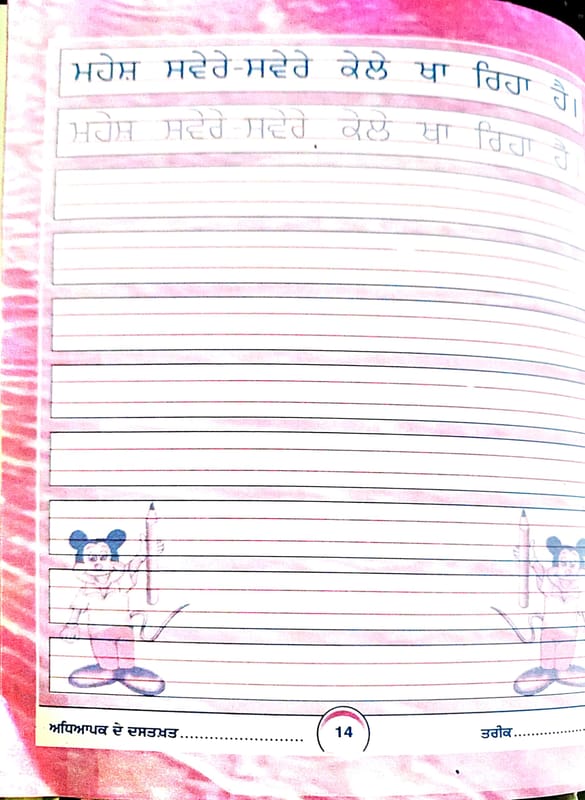 ਮਹੇਸ਼ ਸਵੇਰੇ-ਸਵੇਰੇ ਕੇਲੇ ਖਾ ਰਿਹਾ ਹੈ।
ਮਹੇਸ਼ ਸਵੇਰੇ-ਸਵੇਰੇ ਕੇਲੇ ਖਾ ਰਿਹਾ ਹੈ।
ਅਧਿਆਪਕ ਦੇ ਦਸਤਖ਼ਤ........................ 14 ਤਰੀਕ................